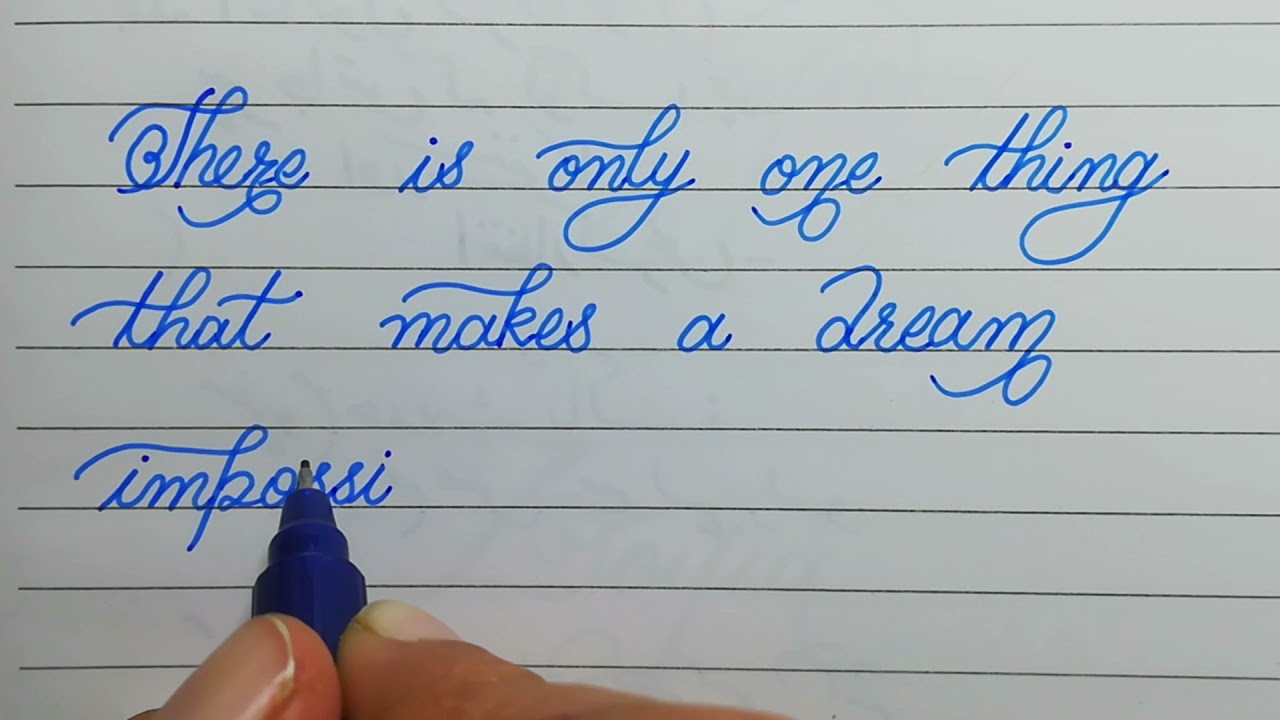 There is only one thing
that makes a dream
impossi